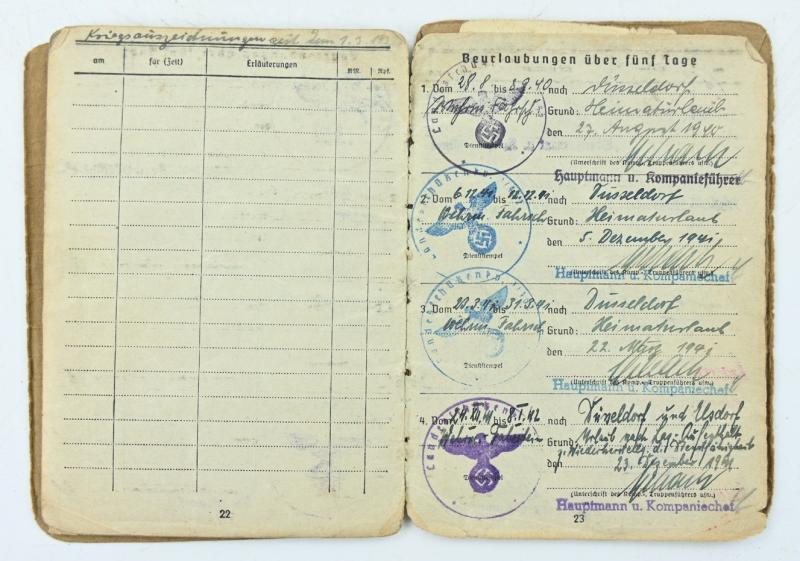 Kriegsauszeichnungen seit dem 1.9.
am für (Zeit) Erläuterungen RM. Rpf.
22
Beurlaubungen über fünf Tage
1. Vom 28.8 bis 8.9.40 nach Düsseldorf
Grund: Heimaturlaub
den 27. August 1940
Dienststempel
(Unterschrift des Komp.- Truppenführers usw.)
Hauptmann u. Kompanieführer
2. Vom 6.12.41 bis 12.12.41 nach Düsseldorf
Wehrm. Fahrsch. Grund: Heimaturlaub
den 5. Dezember 1941
Dienststempel
(Unterschrift des Komp.- Truppenführers usw.)
Hauptmann u. Kompaniechef
3. Vom 23.3.41 bis 31.3.41 nach Düsseldorf
Wehrm. Fahrsch. Grund: Heimaturlaub
den 22. März 1941
Dienststempel
(Unterschrift des Komp.- Truppenführers usw.)
Hauptmann u. Kompaniechef
4. Vom bis nach Düsseldorf und
Grund: Urlaub nach
z. Wiederherstellg. d.
den 23. Dezember 1941
Dienststempel
(Unterschrift des Komp.- Truppenführers usw.)
Hauptmann u. Kompaniechef
23